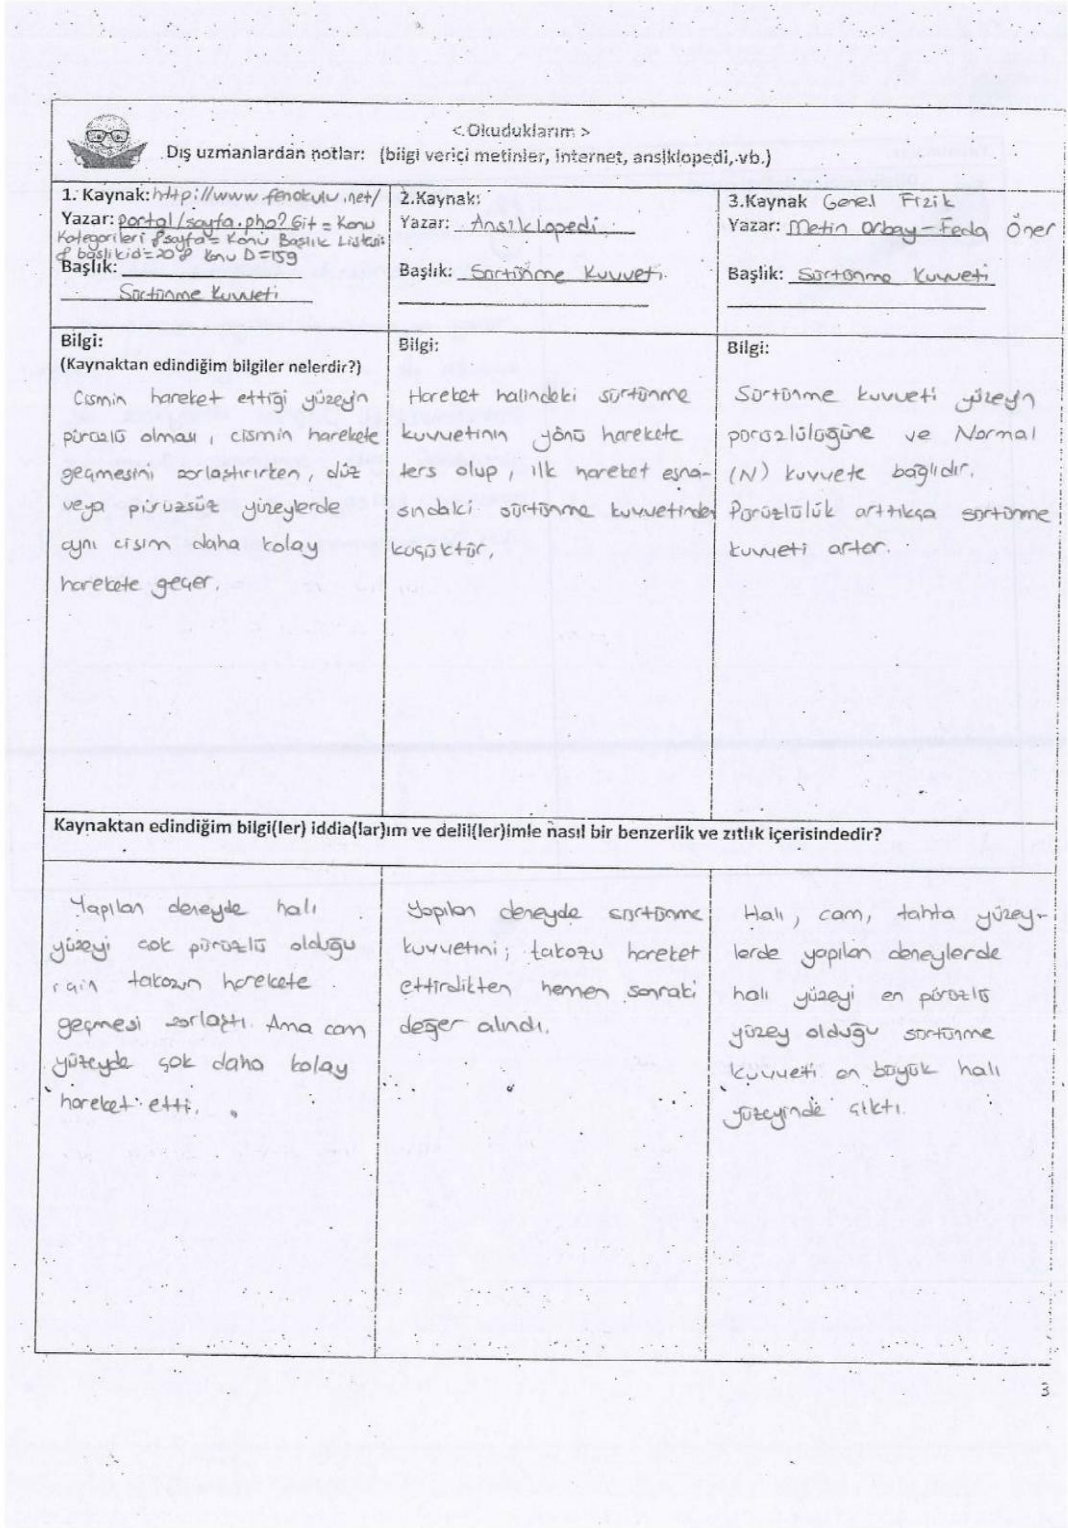 < Okuduklarım >
Dış uzmanlardan notlar: (bilgi verici metinler, internet, ansiklopedi, vb.)
1. Kaynak: http://www.fenokulu.net/
Yazar: portal/sayfa.php? Git = Konu
Kategorileri &sayfa = Konu Başlık Listesi
& baslikid=20& Konu D=159
Başlık:
Sürtünme Kuvveti
2.Kaynak:
Yazar: Ansiklopedi
Başlık: Sürtünme Kuvveti
3.Kaynak Genel Fizik
Yazar: Metin Orbay-Feda Öner
Başlik: Sürtünme Kuvveti
Bilgi:
(Kaynaktan edindiğim bilgiler nelerdir?)
Cismin hareket ettiği yüzeyin
pürüzlü olması, cismin harekete
geçmesini zorlaştırırken, düz
veya pürüzsüz yüzeylerde
aynı cisim daha kolay
harekete geçer.
Bilgi:
Hareket halindeki sürtünme
kuvvetinin yönü harekete
ters olup, ilk hareket esna-
sındaki sürtünme kuvvetinden
küçüktür.
Bilgi:
Sürtünme kuvveti yüzeyn
pürüzlülüğüne ve Normal
(N) kuvvete bağlıdır.
Pürüzlülük arttıkça sürtünme
kuvveti artar.
Kaynaktan edindiğim bilgi(ler) iddia(lar)ım ve delil(ler)imle nasıl bir benzerlik ve zıtlık içerisindedir?
Yapılan deneyde halı
yüzeyi çok pürüzlü olduğu
için takozun harekete
geçmesi zorlaştı. Ama cam
yüzeyde çok daha kolay
hareket etti.
Yapılan deneyde sürtünme
kuvvetini; takozu hareket
ettirdikten hemen sonraki
değer alındı.
Halı, cam, tahta yüzey-
lerde yapılan deneylerde
halı yüzeyi en pürüzlü
yüzey olduğu sürtünme
kuvveti en büyük halı
yüzeyinde çıktı.
3